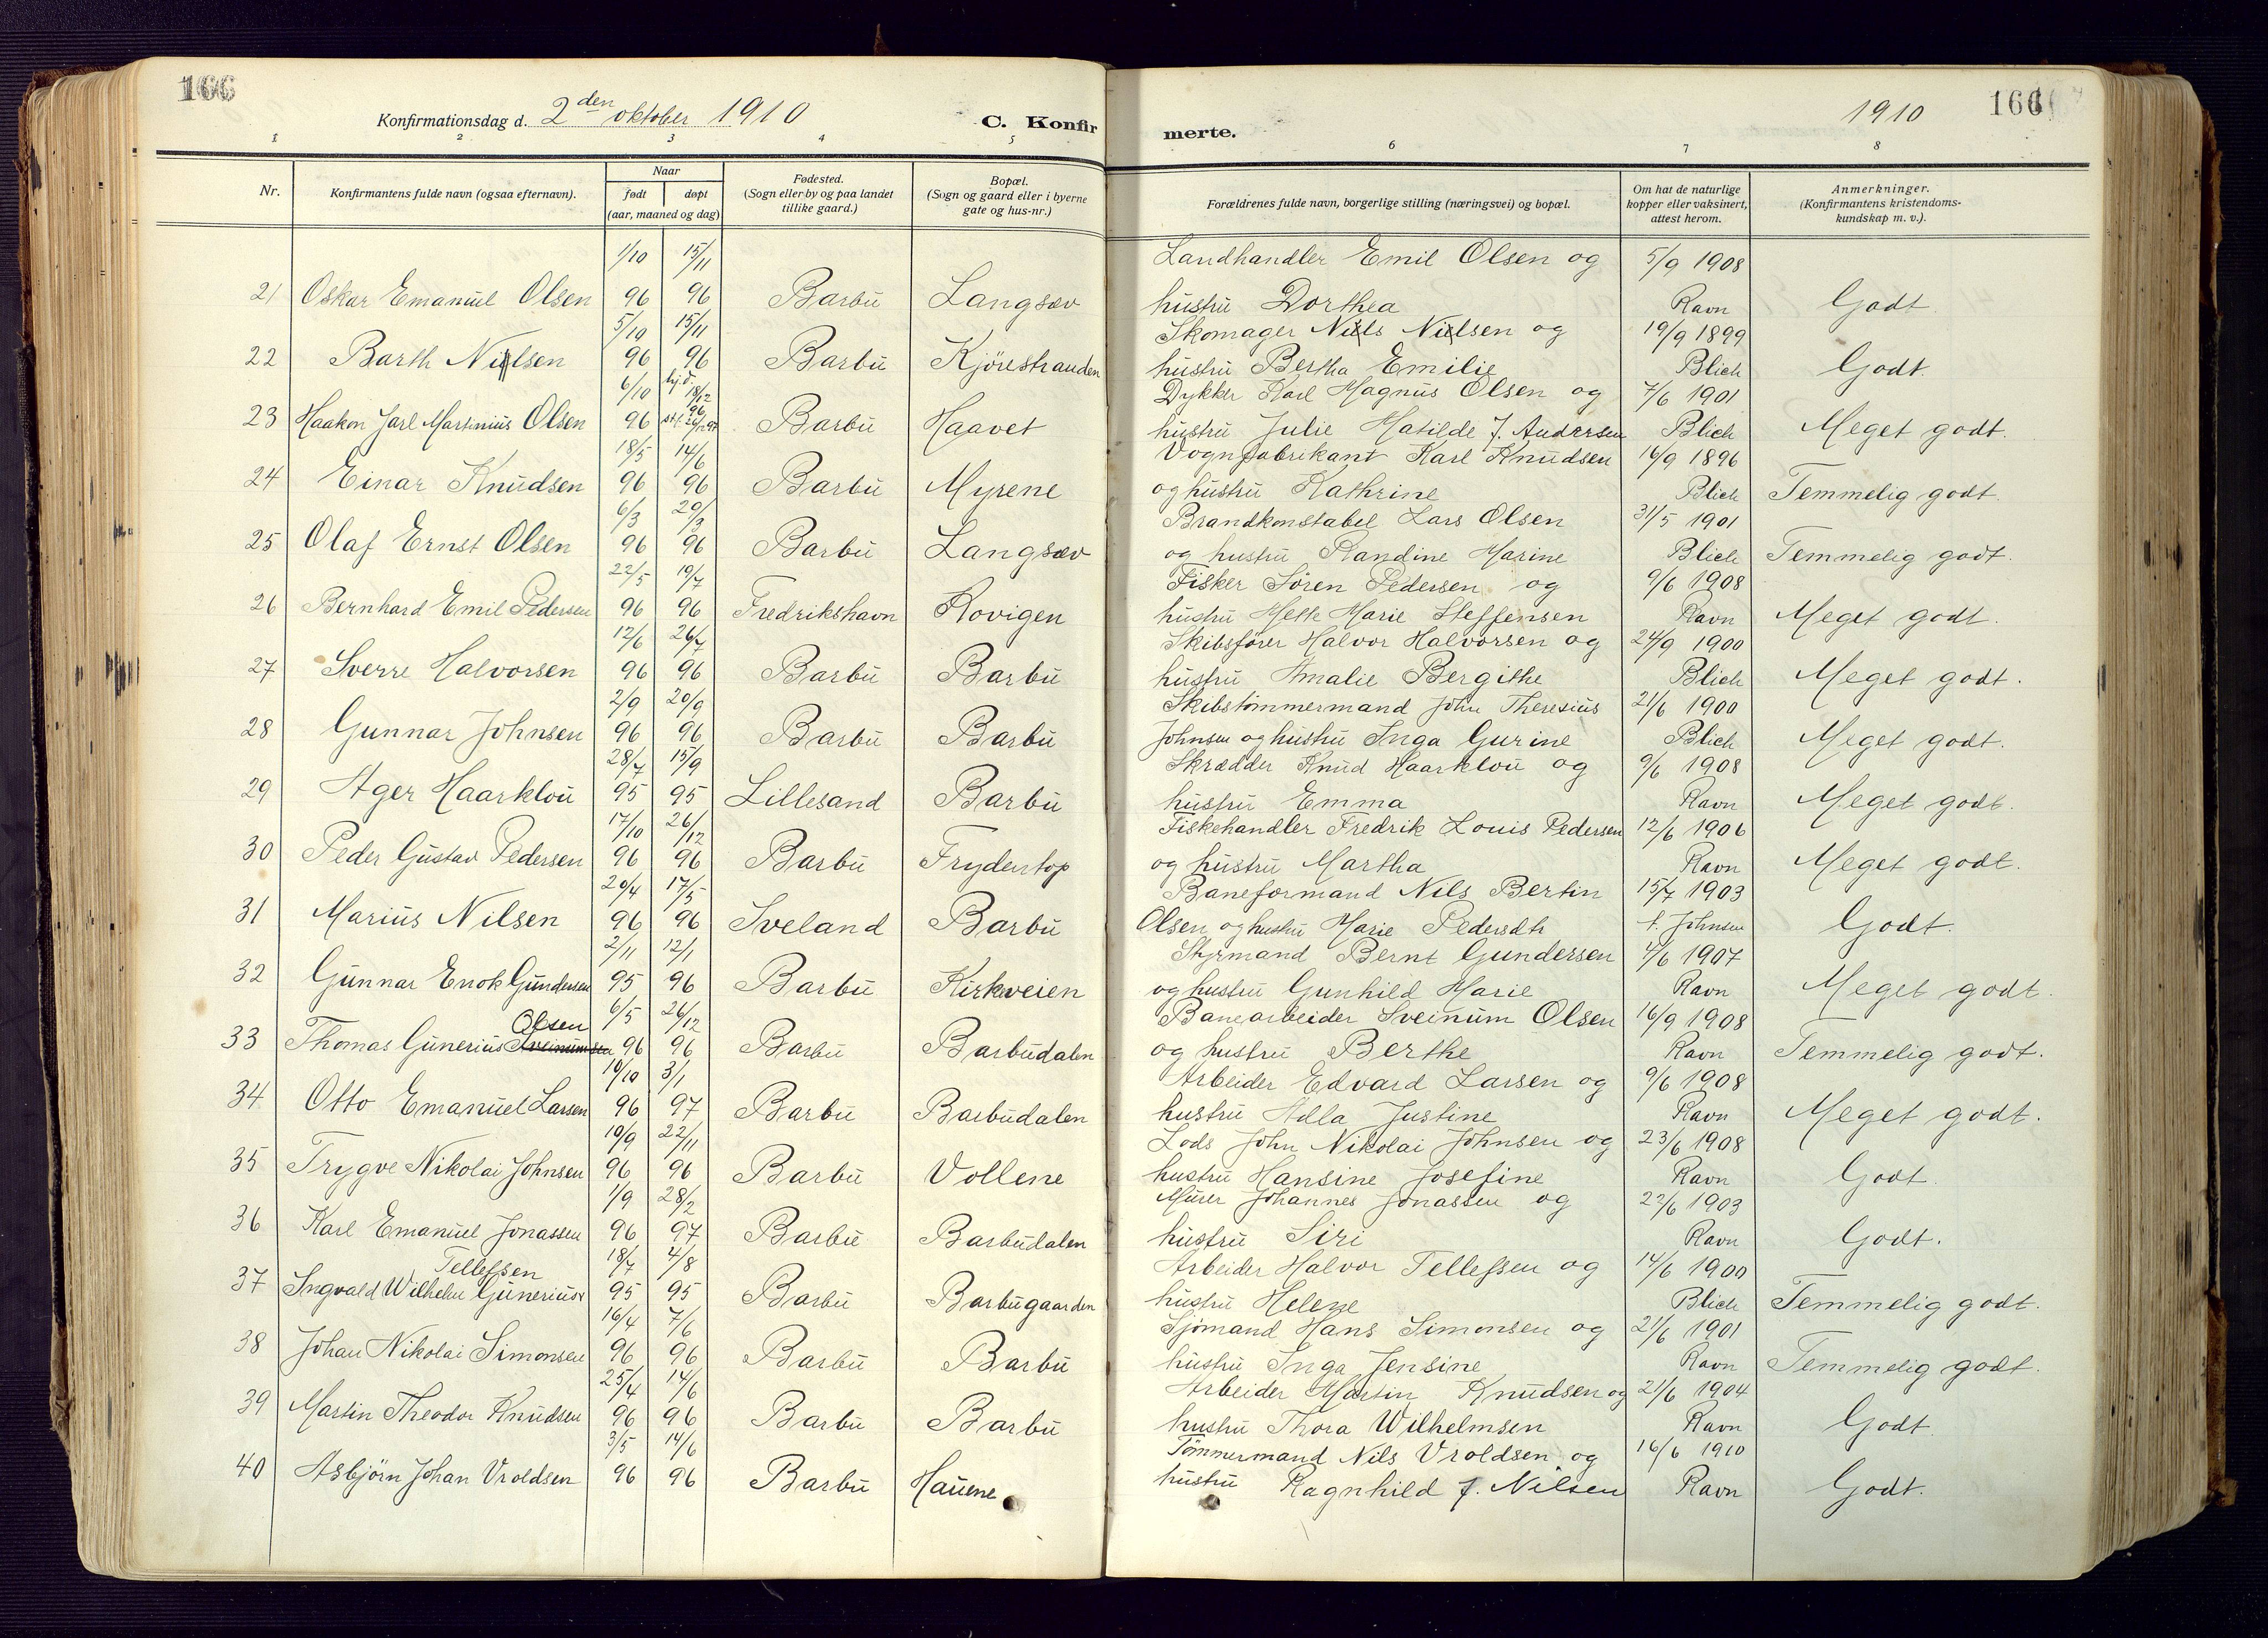 166
Konfirmationsdag d. 2den oktober 1910
C. Konfirmerte.
1910
166
1 2 3 4 5 6 7 8
Nr.
Konfirmantens fulde navn (ogsaa efternavn).
Naar
født døpt
(aar, maaned og dag)
Fødested.
(Sogn eller by og paa landet
tillike gaard.)
Bopæl.
(Sogn og gaard eller i byerne
gate og hus-nr.)
Forældrenes fulde navn, borgerlige stilling (næringsvei) og bopæl.
Om hat de naturlige
kopper eller vaksinert,
attest herom.
Anmerkninger.
(Konfirmantens kristendoms-
kundskap m. v.).
1/10 15/11 Landhandler Emil Olsen og 5/9 1908
21 Oskar Emanuel Olsen 96 96 Barbu Langsæv hustru Dorthea Ravn Godt
5/10 15/11 Skomager Niels Nielsen og 19/9 1899
22 Barth Nilsen 96 96 Barbu Kjörestranden hustru Bertha Emilie Blich Godt.
6/10 hj.d. 18/12 96 Dykker Karl Magnus Olsen og 7/6 1901
23 Haakon Jarl Martinius Olsen 96 Barbu Haavet hustru Julie Matilde f. Andersen Blich Meget godt.
18/5 14/6 Vognfabrikant Karl Knudsen 16/9 1896
24 Einar Knudsen 96 96 Barbu Myrene og hustru Kathrine Blich Temmelig godt.
6/3 29/3 Brandkonstabel Lars Olsen 31/5 1901
25 Olaf Ernst Olsen 96 96 Barbu Langsæv og hustru Randine Marine Blich Temmelig godt.
22/5 19/7 Fisker Sören Pedersen og 9/6 1908
26 Bernhard Emil Pedersen 96 96 Fredrikshavn Rovigen hustru Mette Marie Steffensen Ravn Meget godt.
12/6 26/7 Skibsfører Halvor Halvorsen og 24/9 1900
27 Sverre Halvorsen 96 96 Barbu Barbu hustru Amalie Bergithe Blich Meget godt.
2/9 20/9 Skibstömmermand John Theresius 21/6 1900
28 Gunnar Johnsen 96 96 Barbu Barbu Johnsen og hustru Inga Gurine Blich Meget godt.
28/7 15/9 Skrædder Knud Haarklou og 9/6 1908
29 Ager Haarklou 95 95 Lillesand Barbu hustru Emma Ravn Meget godt.
17/10 26/12 Fiskehandler Fredrik Louis Pedersen 12/6 1906
30 Peder Gustav Pedersen 96 96 Barbu Frydentop og hustru Martha Ravn Meget godt.
20/4 17/5 Baneformand Nils Bertin 15/7 1903
31 Marius Nilsen 96 96 Iveland Barbu Olsen og hustru Marie Pedersdtr f. Johnsen Godt.
2/11 12/1 Styrmand Bernt Gundersen 4/6 1907
32 Gunnar Enok Gundersen 95 96 Barbu Kirkveien og hustru Gunhild Marie Ravn Meget godt.
Olsen 6/5 26/12 Banearbeider Sveinum Olsen 16/9 1908
33 Thomas Gunerius Sveinumsen 96 96 Barbu Barbudalen og hustru Berthe Ravn Temmelig godt.
10/10 3/1 Arbeider Edvard Larsen og 9/6 1908
34 Otto Emanuel Larsen 96 97 Barbu Barbudalen hustru Adla Justine Ravn Meget godt.
10/9 22/11 Lods John Nikolai Johnsen og 23/6 1908
35 Trygve Nikolai Johnsen 96 96 Barbu Vollene hustru Hansine Josefine Ravn Godt.
1/9 28/2 Murer Johannes Jonassen og 22/6 1903
36 Karl Emanuel Jonassen 96 97 Barbu Barbudalen hustru Siri Ravn Godt.
Tellefsen 18/7 4/8 Arbeider Halvor Tellefsen og 14/6 1900
37 Ingvald Wilhelm Gunerius 95 95 Barbu Barbugaarden hustru Helene Blich Temmelig godt.
16/4 7/6 Sjömand Hans Simonsen og 21/6 1901
38 Johan Nikolai Simonsen 96 96 Barbu Barbu hustru Inga Jensine Ravn Temmelig godt.
25/4 14/6 Arbeider Martin Knudsen og 21/6 1904
39 Martin Theodor Knudsen 96 96 Barbu Barbu hustru Thora Wilhelmsen Ravn Godt
3/5 14/6 Tömmermand Nils Vroldsen og 16/6 1910
40 Asbjörn Johan Vroldsen 96 96 Barbu Hauene hustru Ragnhild f. Nilsen Ravn Godt.